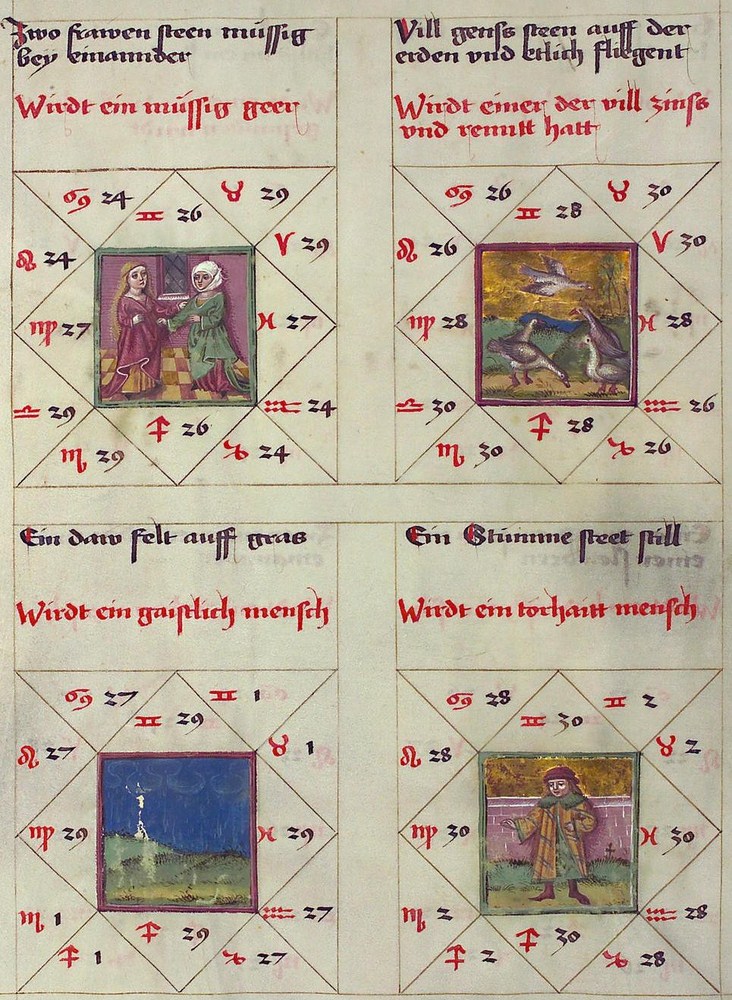 Zwo frawen steen müssig
bey einannder
Wirdt ein müssig geer
♋ 24
♊ 26
♉ 29
♌ 24
♈ 29
♍ 27
♓ 27
♎ 29
♒ 24
♏ 29
♐ 26
♑ 24
Vill genss steen auff der
erden vnd etlich fliegent
Wirdt einer der vill zinss
vnd renntt hatt
♋ 26
♊ 28
♉ 30
♌ 26
♈ 30
♍ 28
♓ 28
♎ 30
♒ 26
♏ 30
♐ 28
♑ 26
Ein daw felt auff gras
Wirdt ein gaistlich mensch
♋ 27
♊ 29
♊ 1
♌ 27
♉ 1
♍ 29
♓ 29
♏ 1
♒ 27
♐ 1
♐ 29
♑ 27
Ein Stümme steet still
Wirdt ein torhaitt mensch
♋ 28
♊ 30
♊ 2
♌ 28
♉ 2
♍ 30
♓ 30
♏ 2
♒ 28
♐ 2
♐ 30
♑ 28